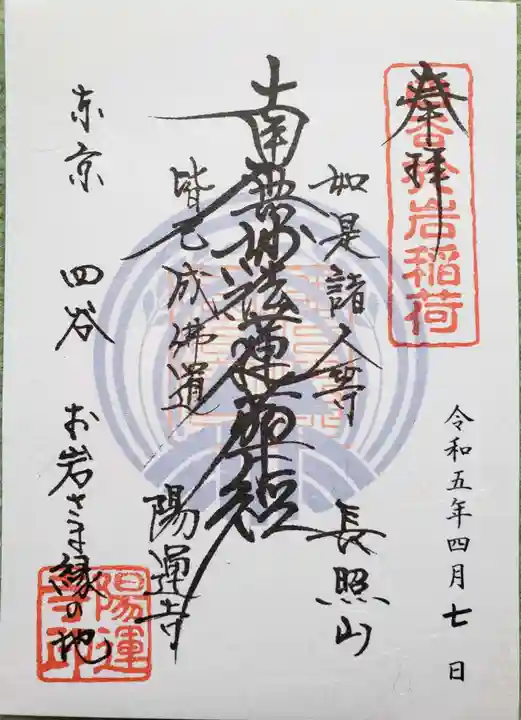 奉拝
四谷於岩稲荷
令和五年四月七日
如是諸人等
長照山
南無妙法蓮華経
皆已成佛道
陽運寺
東京 四谷 お岩さま縁の地
陽運寺印